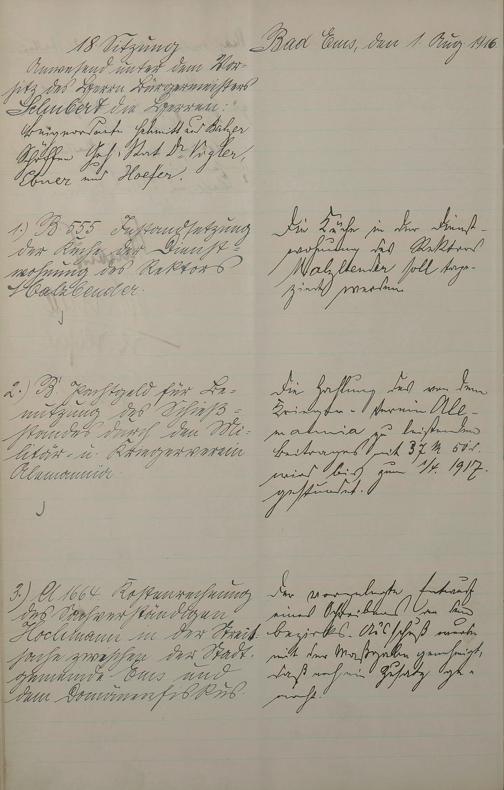 18 Sitzung
Bad Ems, den 1. Aug 1916
Anwesend unter dem Vor-
sitz des Herrn Bürgermeisters
Schubert die Herren:
Schmitt und Balzer
Schöffen Geh. Rat Dr. Vogler,
Ebner und Hoefer.
1.) B 555 Instandsetzung
der Küche der Dienst-
wohnung des Rektors
Malzbender.
Die Küche in der Dienst-
wohnung des Rektors
Malzbender soll tape-
ziert werden
2.) B Pachtgeld für Be-
nutzung des Schieß-
standes durch den Mi-
litär- u. Kriegerverein
Alemannia.
Die Zahlung des von dem
Krieger-Verein Ale-
mannia zu leistenden
Beitrages mit 37 M 50
wird bis zum 1/4. 1917.
gestundet.
3.) A 1664 Kostenrechnung
des Sachverständigen
Hochmann in der Streit-
sache zwischen der Stadt-
gemeinde Ems und
dem Domänenfiskus
Der vorgelegte Entwurf
eines Schreibens an den
Bezirks-Ausschuß wurde
mit der Maßgabe genehmigt,
daß noch ein Zusatz ge-
macht.